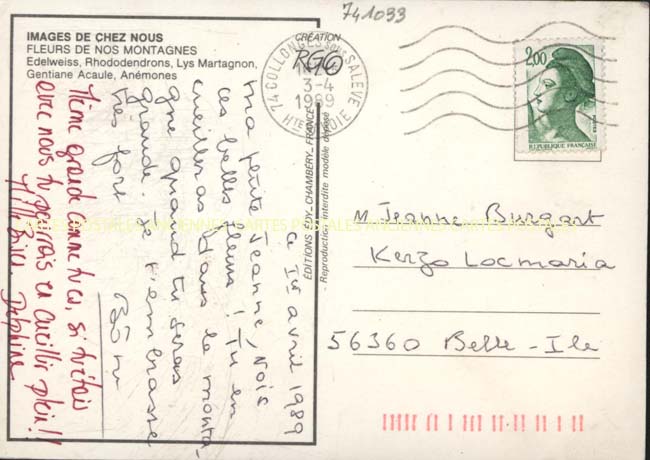 741099
IMAGES DE CHEZ NOUS
FLEURS DE NOS MONTAGNES
Edelweiss, Rhododendrons, Lys Martagnon,
Gentiane Acaule, Anémones
CRÉATION
ÉDITIONS EDY - CHAMBÉRY - FRANCE
- Reproduction interdite modèle déposé
74 COLLONGES SOUS SALEVE
3-4
1989
HTE SAVOIE
2,00
REPUBLIQUE FRANCAISE
Ce 1er avril 1989
Ma petite Jeanne, Vois
ces belles fleurs ! Tu en
cueilleras dans la monta-
gne quand tu seras
grande. Je t'embrasse
très fort
Même grande comme tu es, si tu étais
avec nous tu pourrais en cueillir plein !!
Delphine
M Jeanne Burgart
Kerzo Locmaria
56360 Belle-Ile
CARTES POSTALES ANCIENNES CARTES POSTALES ANCIENNES